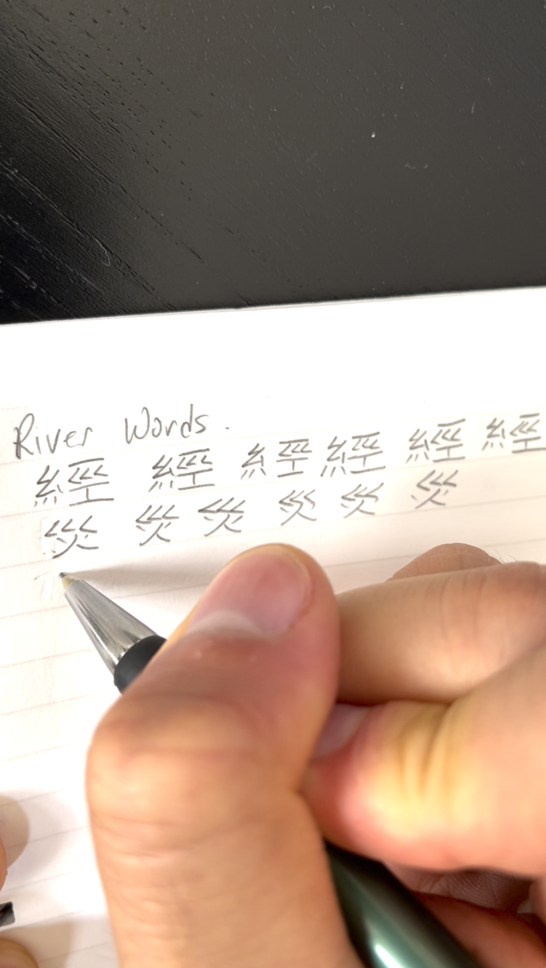 River Words.
經 經 經 經 經 經
災 災 災 災 災 災